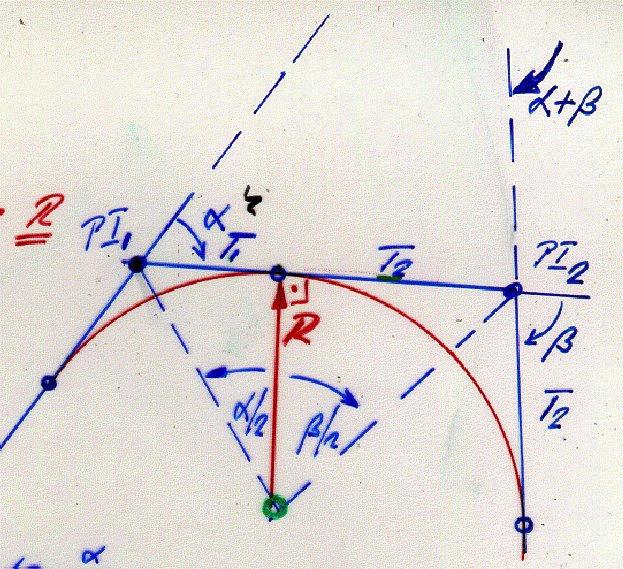 α+β
R
PI₁
α
T₁
T₂
PI₂
R
β
α/2
β/2
T₂
α